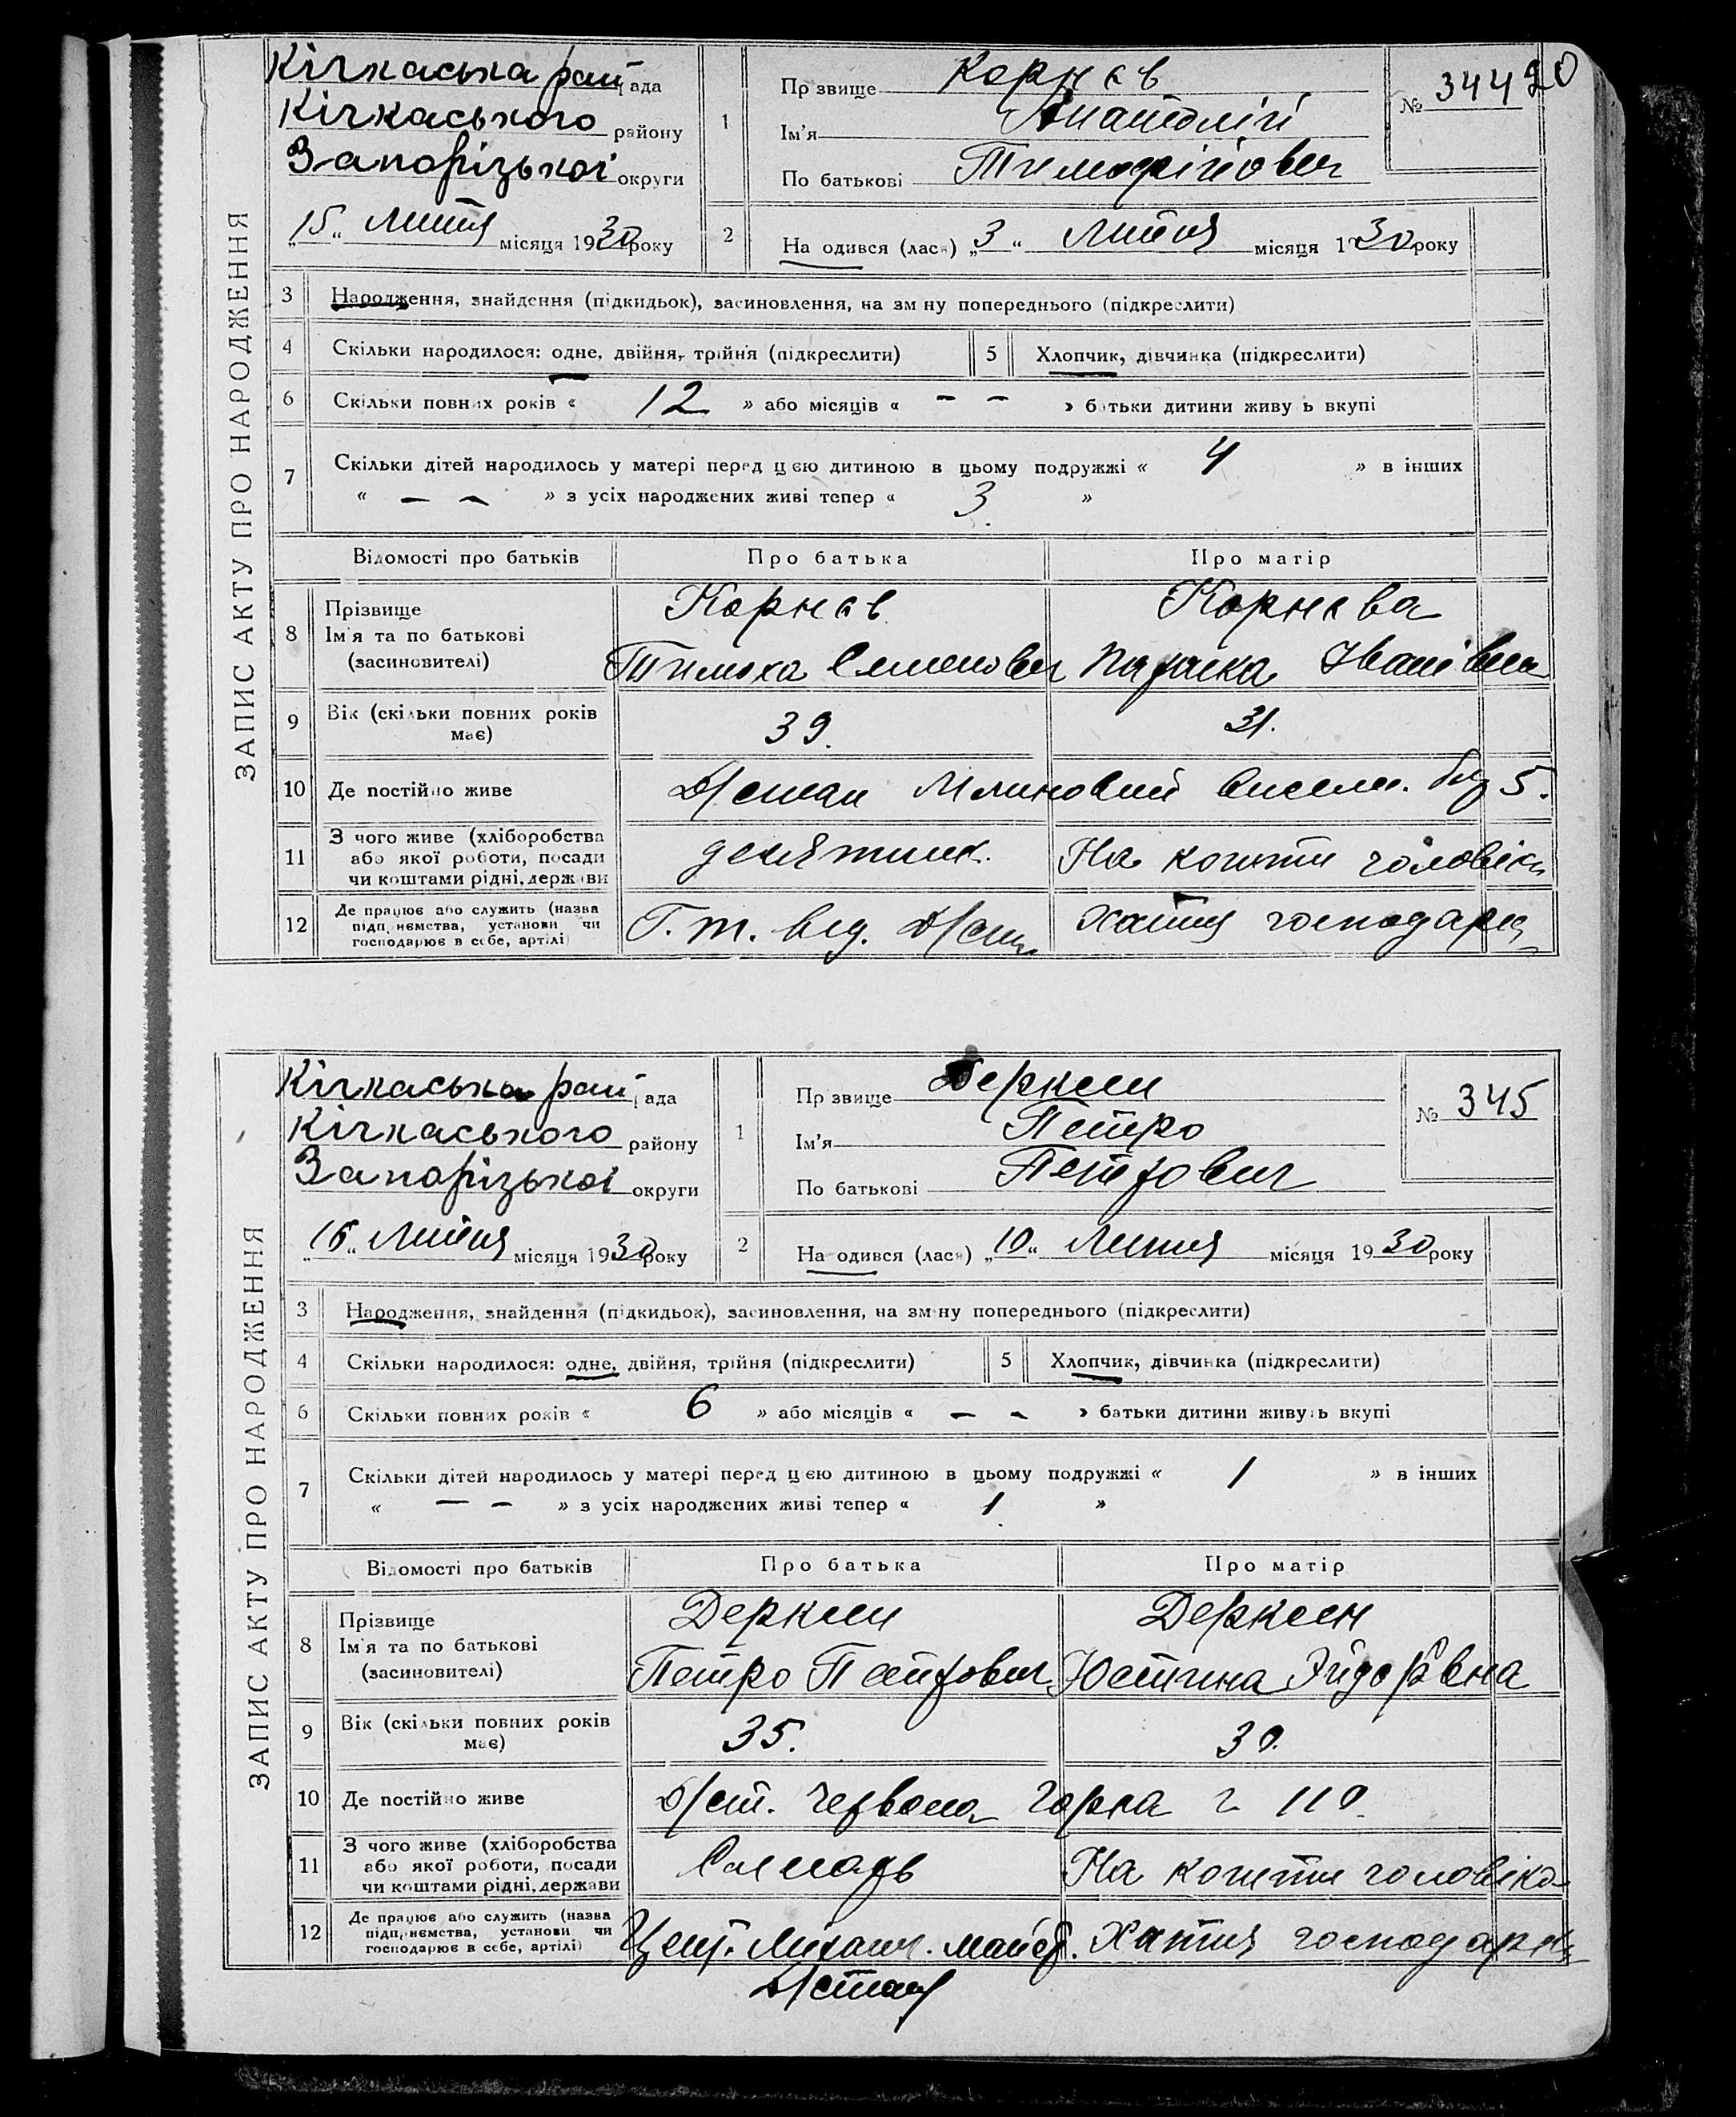 ЗАПИС АКТУ ПРО НАРОДЖЕННЯ
Кічкаська рай рада
Кічкаського району
Запорізької округи
„15“ Липня місяця 1930 року
1
Прізвище Корнєв
Ім'я Анатолій
По батькові Тимофійович
№ 344
20
2
Народився (лася) „3“ Липня місяця 1930 року
3 Народження, знайдення (підкидьок), засиновлення, на зміну попереднього (підкреслити)
4 Скільки народилося: одне, двійня, трійня (підкреслити) 5 Хлопчик, дівчинка (підкреслити)
6 Скільки повних років « 12 » або місяців « – – » батьки дитини живуть вкупі
7 Скільки дітей народилось у матері перед цією дитиною в цьому подружжі « 4 » в інших
« – – » з усіх народжених живі тепер « 3 »
Відомості про батьків Про батька Про матір
8 Прізвище
Ім'я та по батькові
(засиновителі)
Корнєв Корнєва
Тимоха Семенович Параска Іванівна
9 Вік (скільки повних років має) 39. 31.
10 Де постійно живе Д/стан Млиновий висели. буд 5.
11 З чого живе (хліборобства
або якої роботи, посади
чи коштами рідні, держави
десятник. На кошти чоловіка
12 Де працює або служить (назва
підприємства, установи чи
господарює в себе, артілі)
Г. т. від. Д/стан Хатня господарка
ЗАПИС АКТУ ПРО НАРОДЖЕННЯ
Кічкаська рай рада
Кічкаського району
Запорізької округи
„16“ Липня місяця 1930 року
1
Прізвище Дерксен
Ім'я Петро
По батькові Петрович
№ 345
2
Народився (лася) „10“ Липня місяця 1930 року
3 Народження, знайдення (підкидьок), засиновлення, на зміну попереднього (підкреслити)
4 Скільки народилося: одне, двійня, трійня (підкреслити) 5 Хлопчик, дівчинка (підкреслити)
6 Скільки повних років « 6 » або місяців « – – » батьки дитини живуть вкупі
7 Скільки дітей народилось у матері перед цією дитиною в цьому подружжі « 1 » в інших
« – – » з усіх народжених живі тепер « 1 »
Відомості про батьків Про батька Про матір
8 Прізвище
Ім'я та по батькові
(засиновителі)
Дерксен Дерксен
Петро Петрович Юстина
9 Вік (скільки повних років має) 35. 30.
10 Де постійно живе Д/ст. Червона Горка 110
11 З чого живе (хліборобства
або якої роботи, посади
чи коштами рідні, держави
Слюсарь На кошти чоловіка
12 Де працює або служить (назва
підприємства, установи чи
господарює в себе, артілі)
Цент. Механіч. майст. Хатня господарка
Д/стан